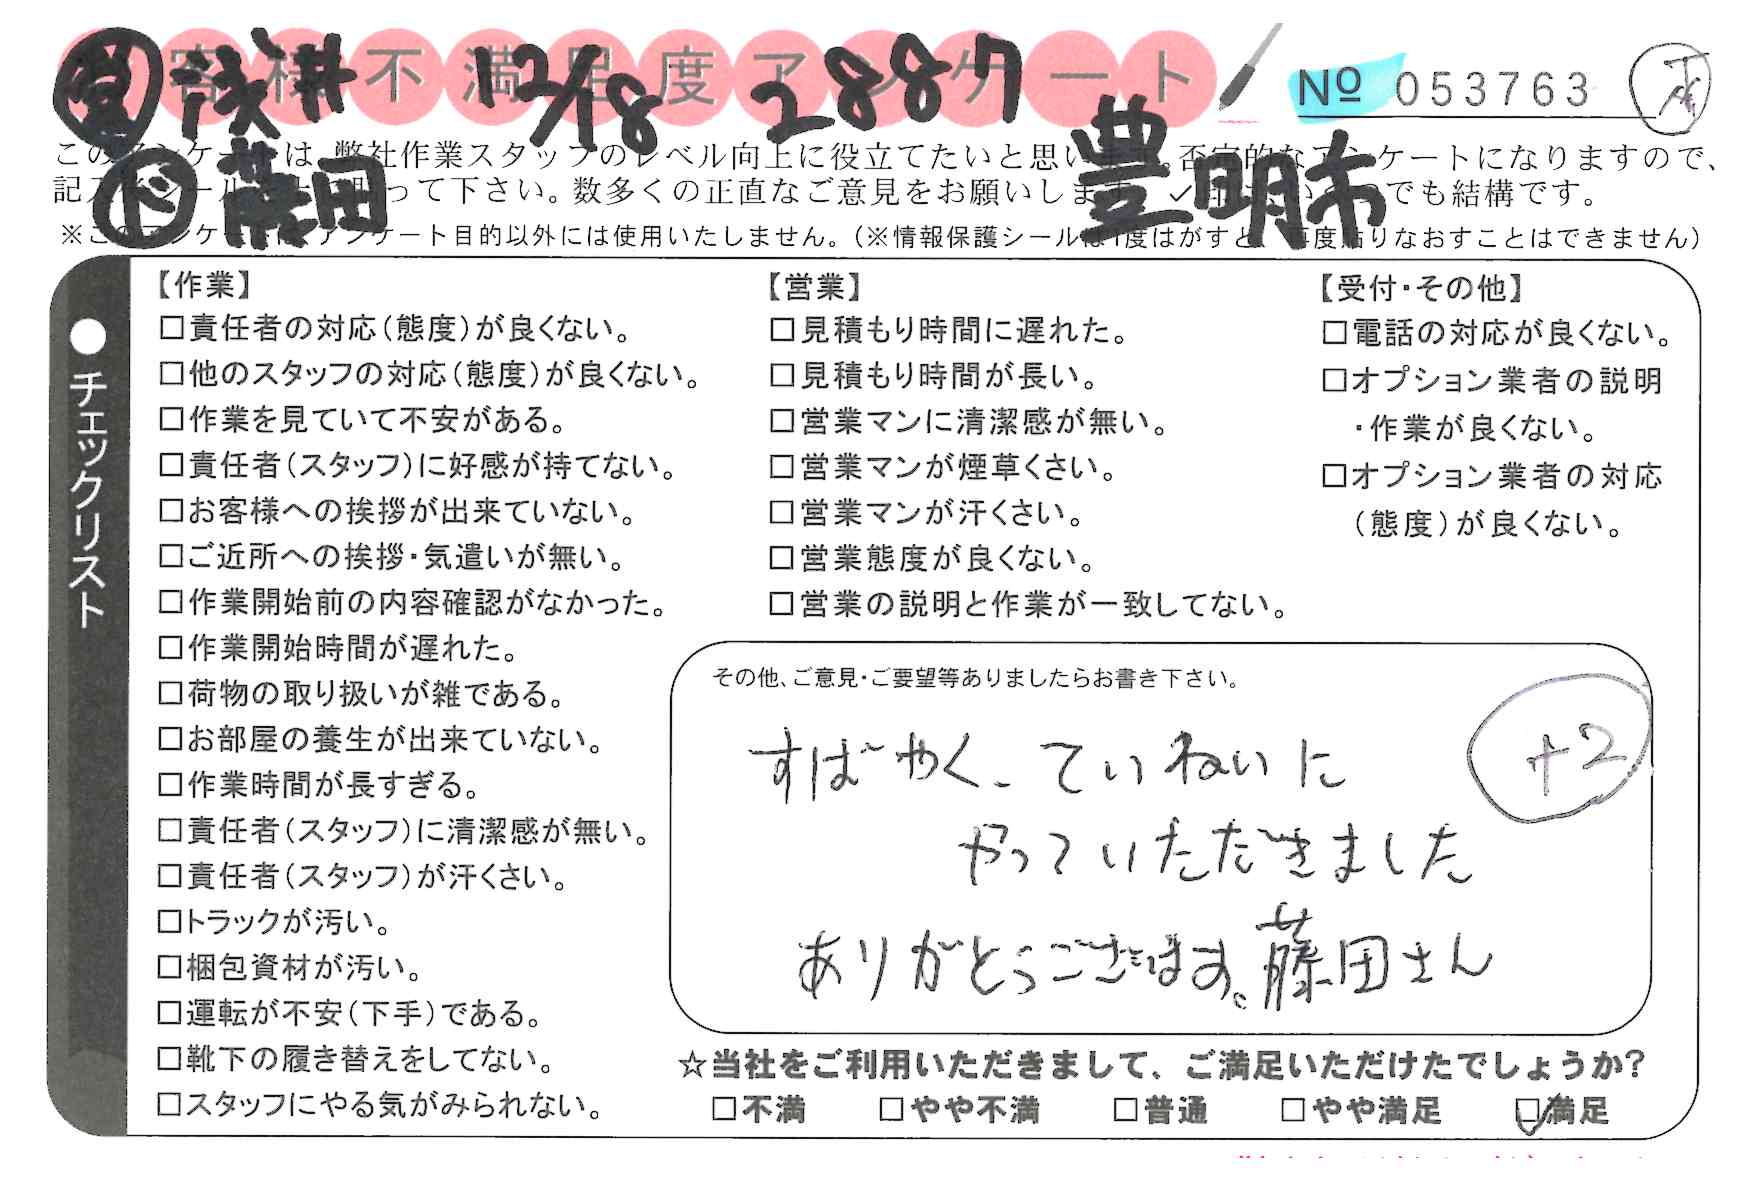 お客様不満足度アンケート
営 浅井 12/18 2887
№ 053763
ド 藤田 豊明市
このアンケートは、弊社作業スタッフのレベル向上に役立てたいと思います。否定的なアンケートになりますので、
記入後シールを上に貼って下さい。数多くの正直なご意見をお願いします。✓印はいくつでも結構です。
※このアンケートは、アンケート目的以外には使用いたしません。(※情報保護シールは1度はがすと、再度貼りなおすことはできません)
●チェックリスト
【作業】
□責任者の対応(態度)が良くない。
□他のスタッフの対応(態度)が良くない。
□作業を見ていて不安がある。
□責任者(スタッフ)に好感が持てない。
□お客様への挨拶が出来ていない。
□ご近所への挨拶・気遣いが無い。
□作業開始前の内容確認がなかった。
□作業開始時間が遅れた。
□荷物の取り扱いが雑である。
□お部屋の養生が出来ていない。
□作業時間が長すぎる。
□責任者(スタッフ)に清潔感が無い。
□責任者(スタッフ)が汗くさい。
□トラックが汚い。
□梱包資材が汚い。
□運転が不安(下手)である。
□靴下の履き替えをしてない。
□スタッフにやる気がみられない。
【営業】
□見積もり時間に遅れた。
□見積もり時間が長い。
□営業マンに清潔感が無い。
□営業マンが煙草くさい。
□営業マンが汗くさい。
□営業態度が良くない。
□営業の説明と作業が一致してない。
【受付・その他】
□電話の対応が良くない。
□オプション業者の説明
・作業が良くない。
□オプション業者の対応
(態度)が良くない。
その他、ご意見・ご要望等ありましたらお書き下さい。
すばやく、ていねいに
+2
やっていただきました
ありがとうございます。藤田さん
☆当社をご利用いただきまして、ご満足いただけたでしょうか?
□不満 □やや不満 □普通 □やや満足 ☑満足